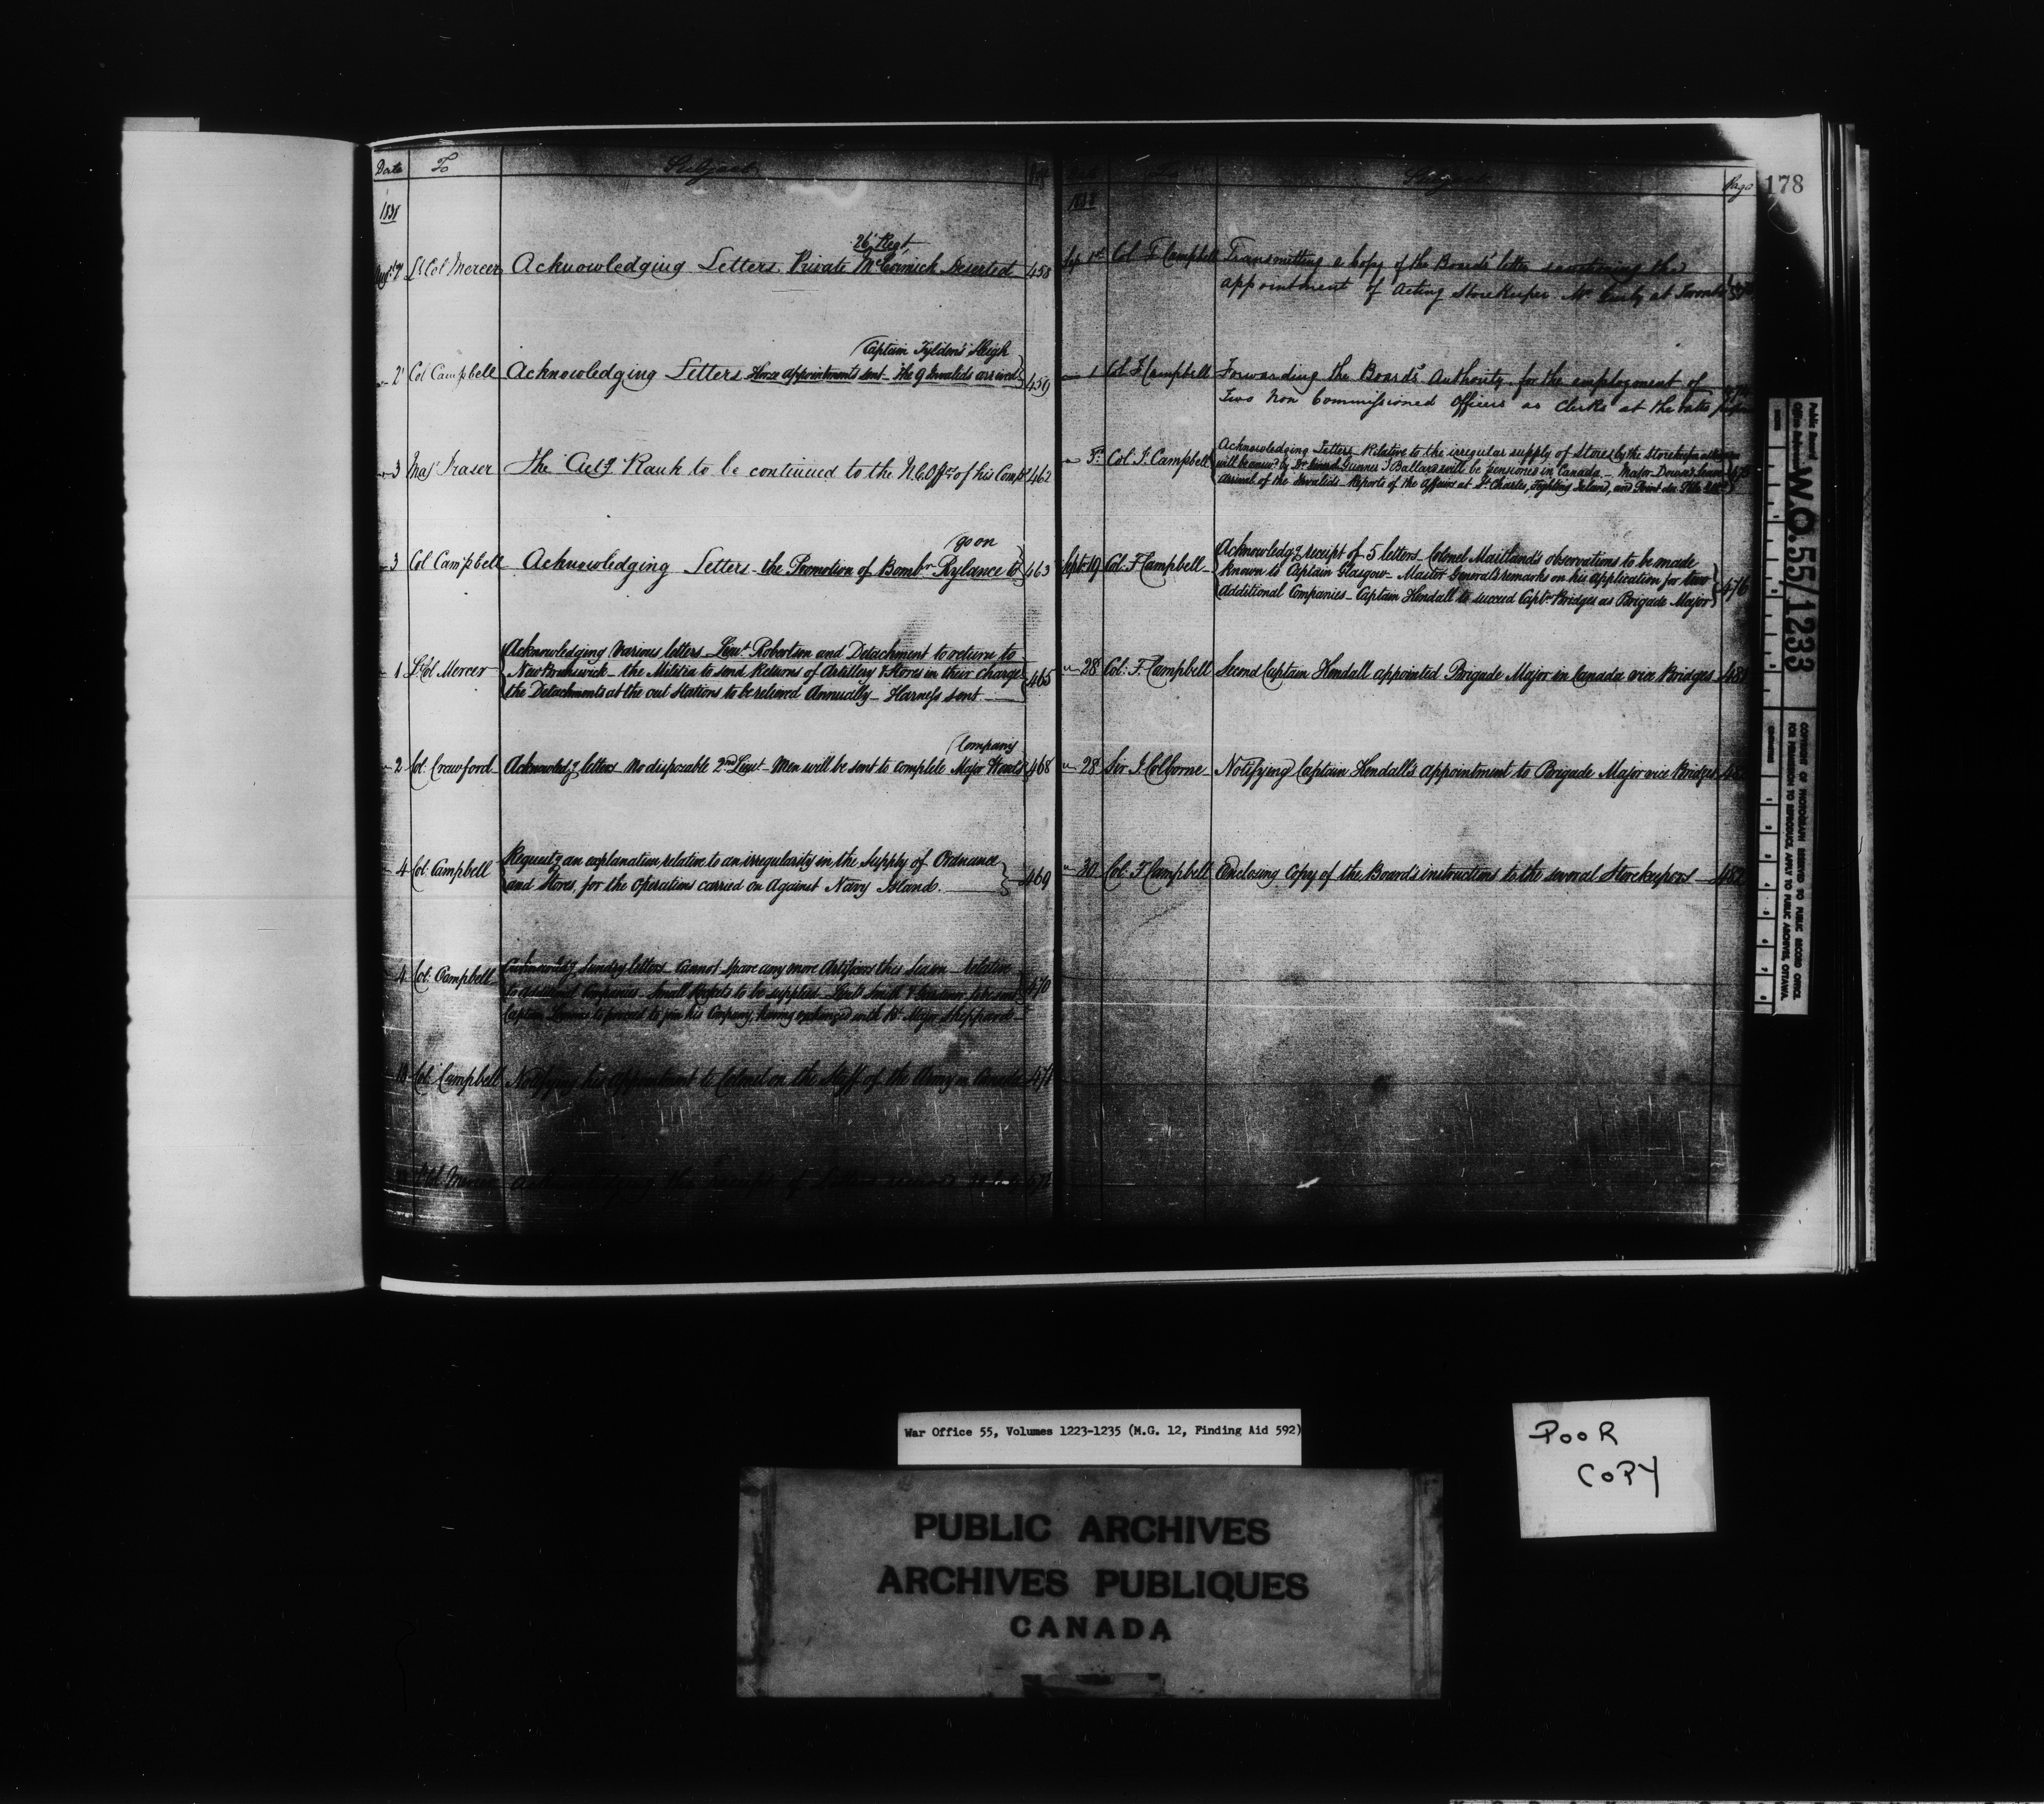 Date To Subject
1838
26 Regt
Augt 7 Lt Col Mercer Acknowledging Letters Private McCormick Deserted 458
Captain Tylden's Sleigh
2 Col Campbell Acknowledging Letters Horse appointments sent - The 9 Invalids arrived 459
3 Maj Fraser The Actg Rank to be continued to the N.C. Offrs of his Compy 462
go on
3 Col Campbell Acknowledging Letters - the Promotion of Bombr Rylance to 463
Acknowledging Various letters Lieut Robertson and Detachment to return to
1 Lt Col Mercer New Brunswick - the Militia to send Returns of Artillery & Stores in their charge 465
the Detachments at the out Stations to be relieved Annually - Harness sent
Company
2 Col. Crawford Acknowledg letters No disposable 2nd Lieut - Men will be sent to complete Major 468
4 Col. Campbell Requestg an explanation relative to an irregularity in the Supply of Ordnance
and Stores, for the Operations carried on Against Navy Island. 469
4 Col. Campbell Sundry letters Cannot Spare any more Artificers this Season - relative
to additional Companies - Small Rockets to be supplied - 470
Captain to proceed to join his Company, having exchanged with Bt Major Sheppard
Col. Campbell Notifying his appointment to Colonel on the Staff of the Army in Canada 471
Col. Mercer the receipt of
Page 178
1838
Sep 1st Col F Campbell Transmitting a Copy of the Boards' letter sanctioning the
appointment of Acting StoreKeeper Mr at Toronto
1 Col F Campbell Forwarding the Boards' Authority for the employment of
Two Non Commissioned Officers as Clerks at the rates
Acknowledging Letters Relative to the irregular supply of Stores by the Storekeeper
5 Col. F. Campbell will be Ballard will be pensioned in Canada - Major
Arrival of the Invalids - Reports of the Affairs at St Charles, Fighting Island, and Point au Pele
Acknowledg receipt of 5 letters Colonel Maitland's observations to be made
Sept 19 Col. F Campbell known to Captain Glasgow - Master General's remarks on his application for two
Additional Companies - Captain Hendall to succeed Captn Bridges as Brigade Major 476
28 Col. F. Campbell Second Captain Hendall appointed Brigade Major in Canada vice Bridges 481
28 Sir J Colborne Notifying Captain Hendall's Appointment to Brigade Major vice Bridges
30 Col. F Campbell Enclosing Copy of the Board's instructions to the several Storekeepers
Public Record Office
W.O. 55/1233
COPYRIGHT OF PHOTOGRAPH RESERVED TO PUBLIC RECORD OFFICE.
FOR PERMISSION TO REPRODUCE, APPLY TO PUBLIC ARCHIVES, OTTAWA.
War Office 55, Volumes 1223-1235 (M.G. 12, Finding Aid 592)
POOR
COPY
PUBLIC ARCHIVES
ARCHIVES PUBLIQUES
CANADA